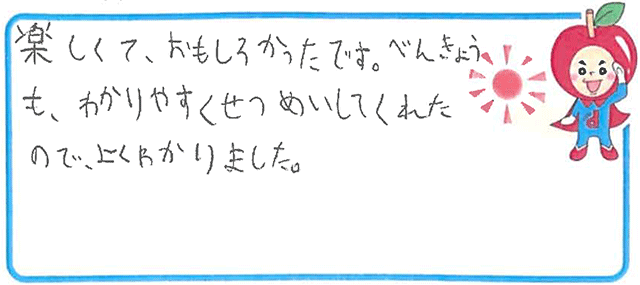 楽しくて、おもしろかったです。べんきょう
も、わかりやすくせつめいしてくれた
ので、よくわかりました。
d